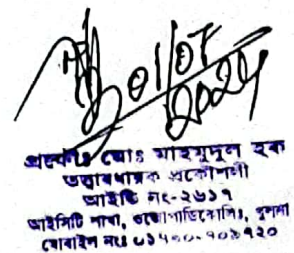 01/07
2024
প্রকৌঃ মোঃ মাহমুদুল হক
তত্ত্বাবধায়ক প্রকৌশলী
আইডি নং-২৬১৭
আইসিটি শাখা, ওজোপাডিকোলিঃ, খুলনা
মোবাইল নংঃ